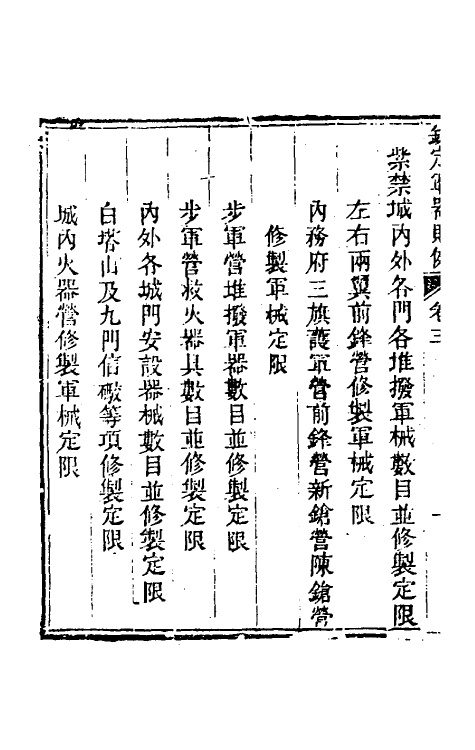 欽定軍器則例 卷三
紫禁城內外各門各堆撥軍械數目並修製定限
左右兩翼前鋒營修製軍械定限
內務府三旗護軍營前鋒營新鎗營陳鎗營
修製軍械定限
步軍營堆撥軍器數目並修製定限
步軍營救火器具數目並修製定限
內外各城門安設器械數目並修製定限
白塔山及九門信礮等項修製定限
城內火器營修製軍械定限